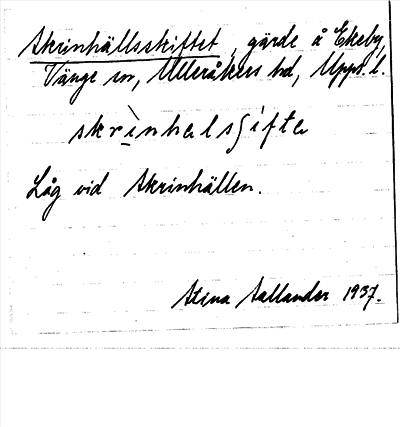 Skrinhällsskiftet, gärde å Ekeby,
Vänge sn, Ulleråkers hd, Upps. l.
skrìnhelsʃífte
Låg vid Skrinhällen.
Stina Sallander 1937.